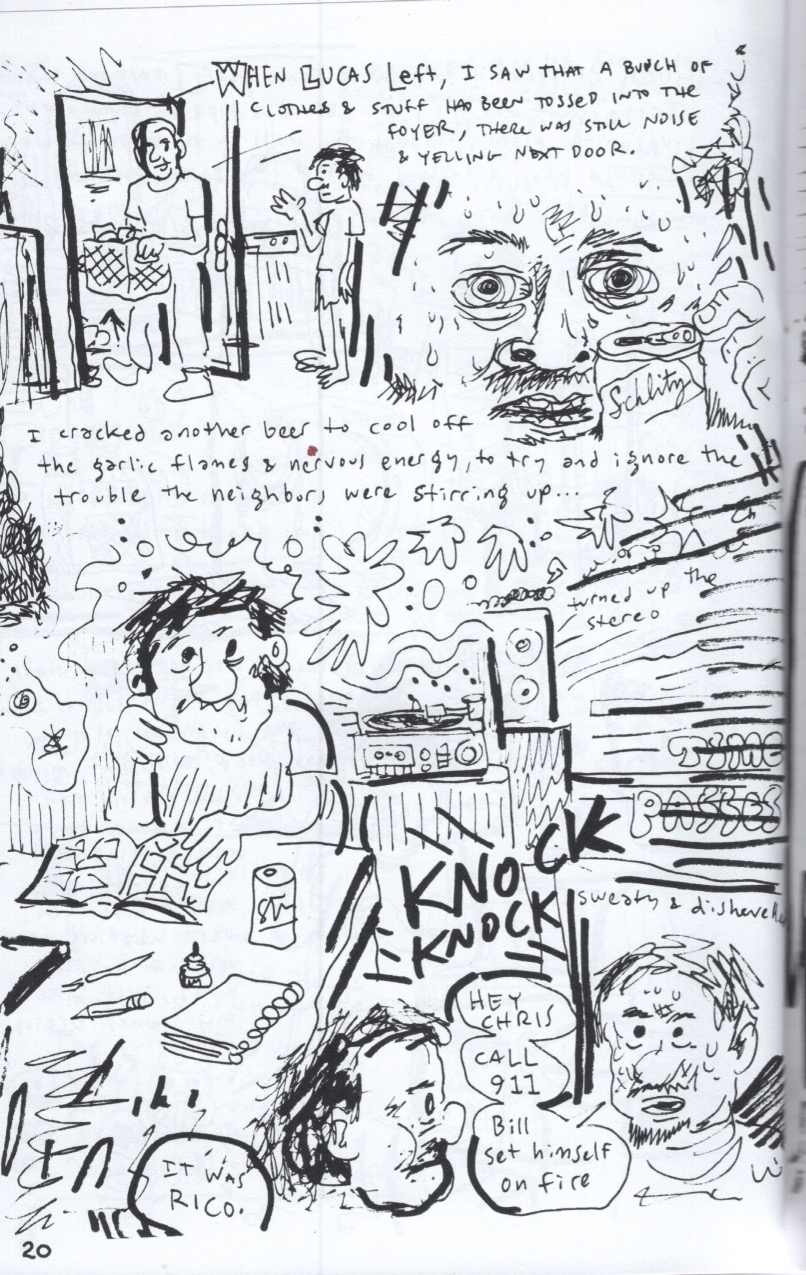 WHEN LUCAS Left, I SAW THAT A BUNCH OF
CLOTHES & STUFF HAD BEEN TOSSED INTO THE
FOYER, THERE WAS STILL NOISE
& YELLING NEXT DOOR.
Schlitz
I cracked another beer to cool off
the garlic flames & nervous energy, to try and ignore the
trouble the neighbors were stirring up...
turned up the
stereo
TIME
PASSES
KNOCK
KNOCK
sweaty & dishevele
HEY
CHRIS
CALL
911
Bill
set himself
on fire
IT WAS
RICO.
20